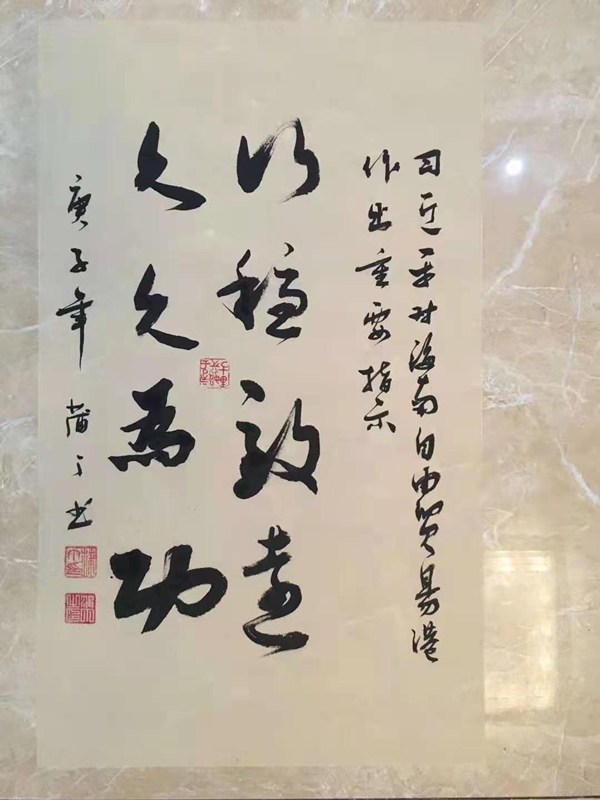 习近平对海南自由贸易港
作出重要指示
行稳致远
久久为功
庚子年 蒲了书